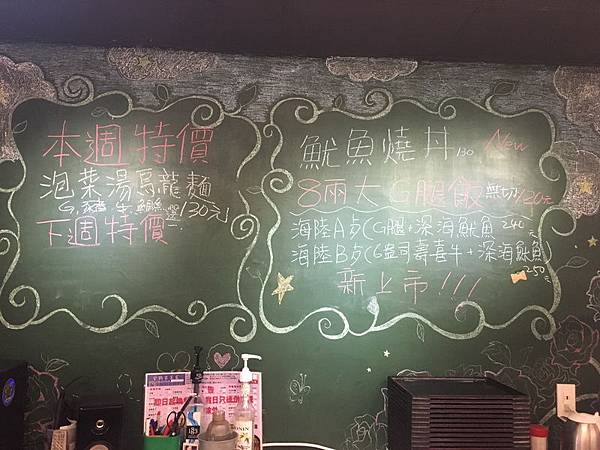 本週特價
泡菜湯烏龍麵
G,豬,牛,鯛魚 130元
下週特價
魷魚燒丼 130 New
8兩大G腿飯 無切 120元
海陸A(G腿+深海魷魚 240元
海陸B(G壽喜牛+深海魷魚) 250元
新上市!!!